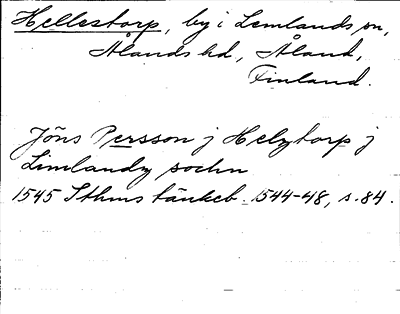 Hellestorp, by i Lemlands sn,
Ålands hd, Åland,
Finland.
Jöns Persson j Helgtorp j
Limlandz sochn
1545 Sthms tänkeb. 1544-48, s. 84.